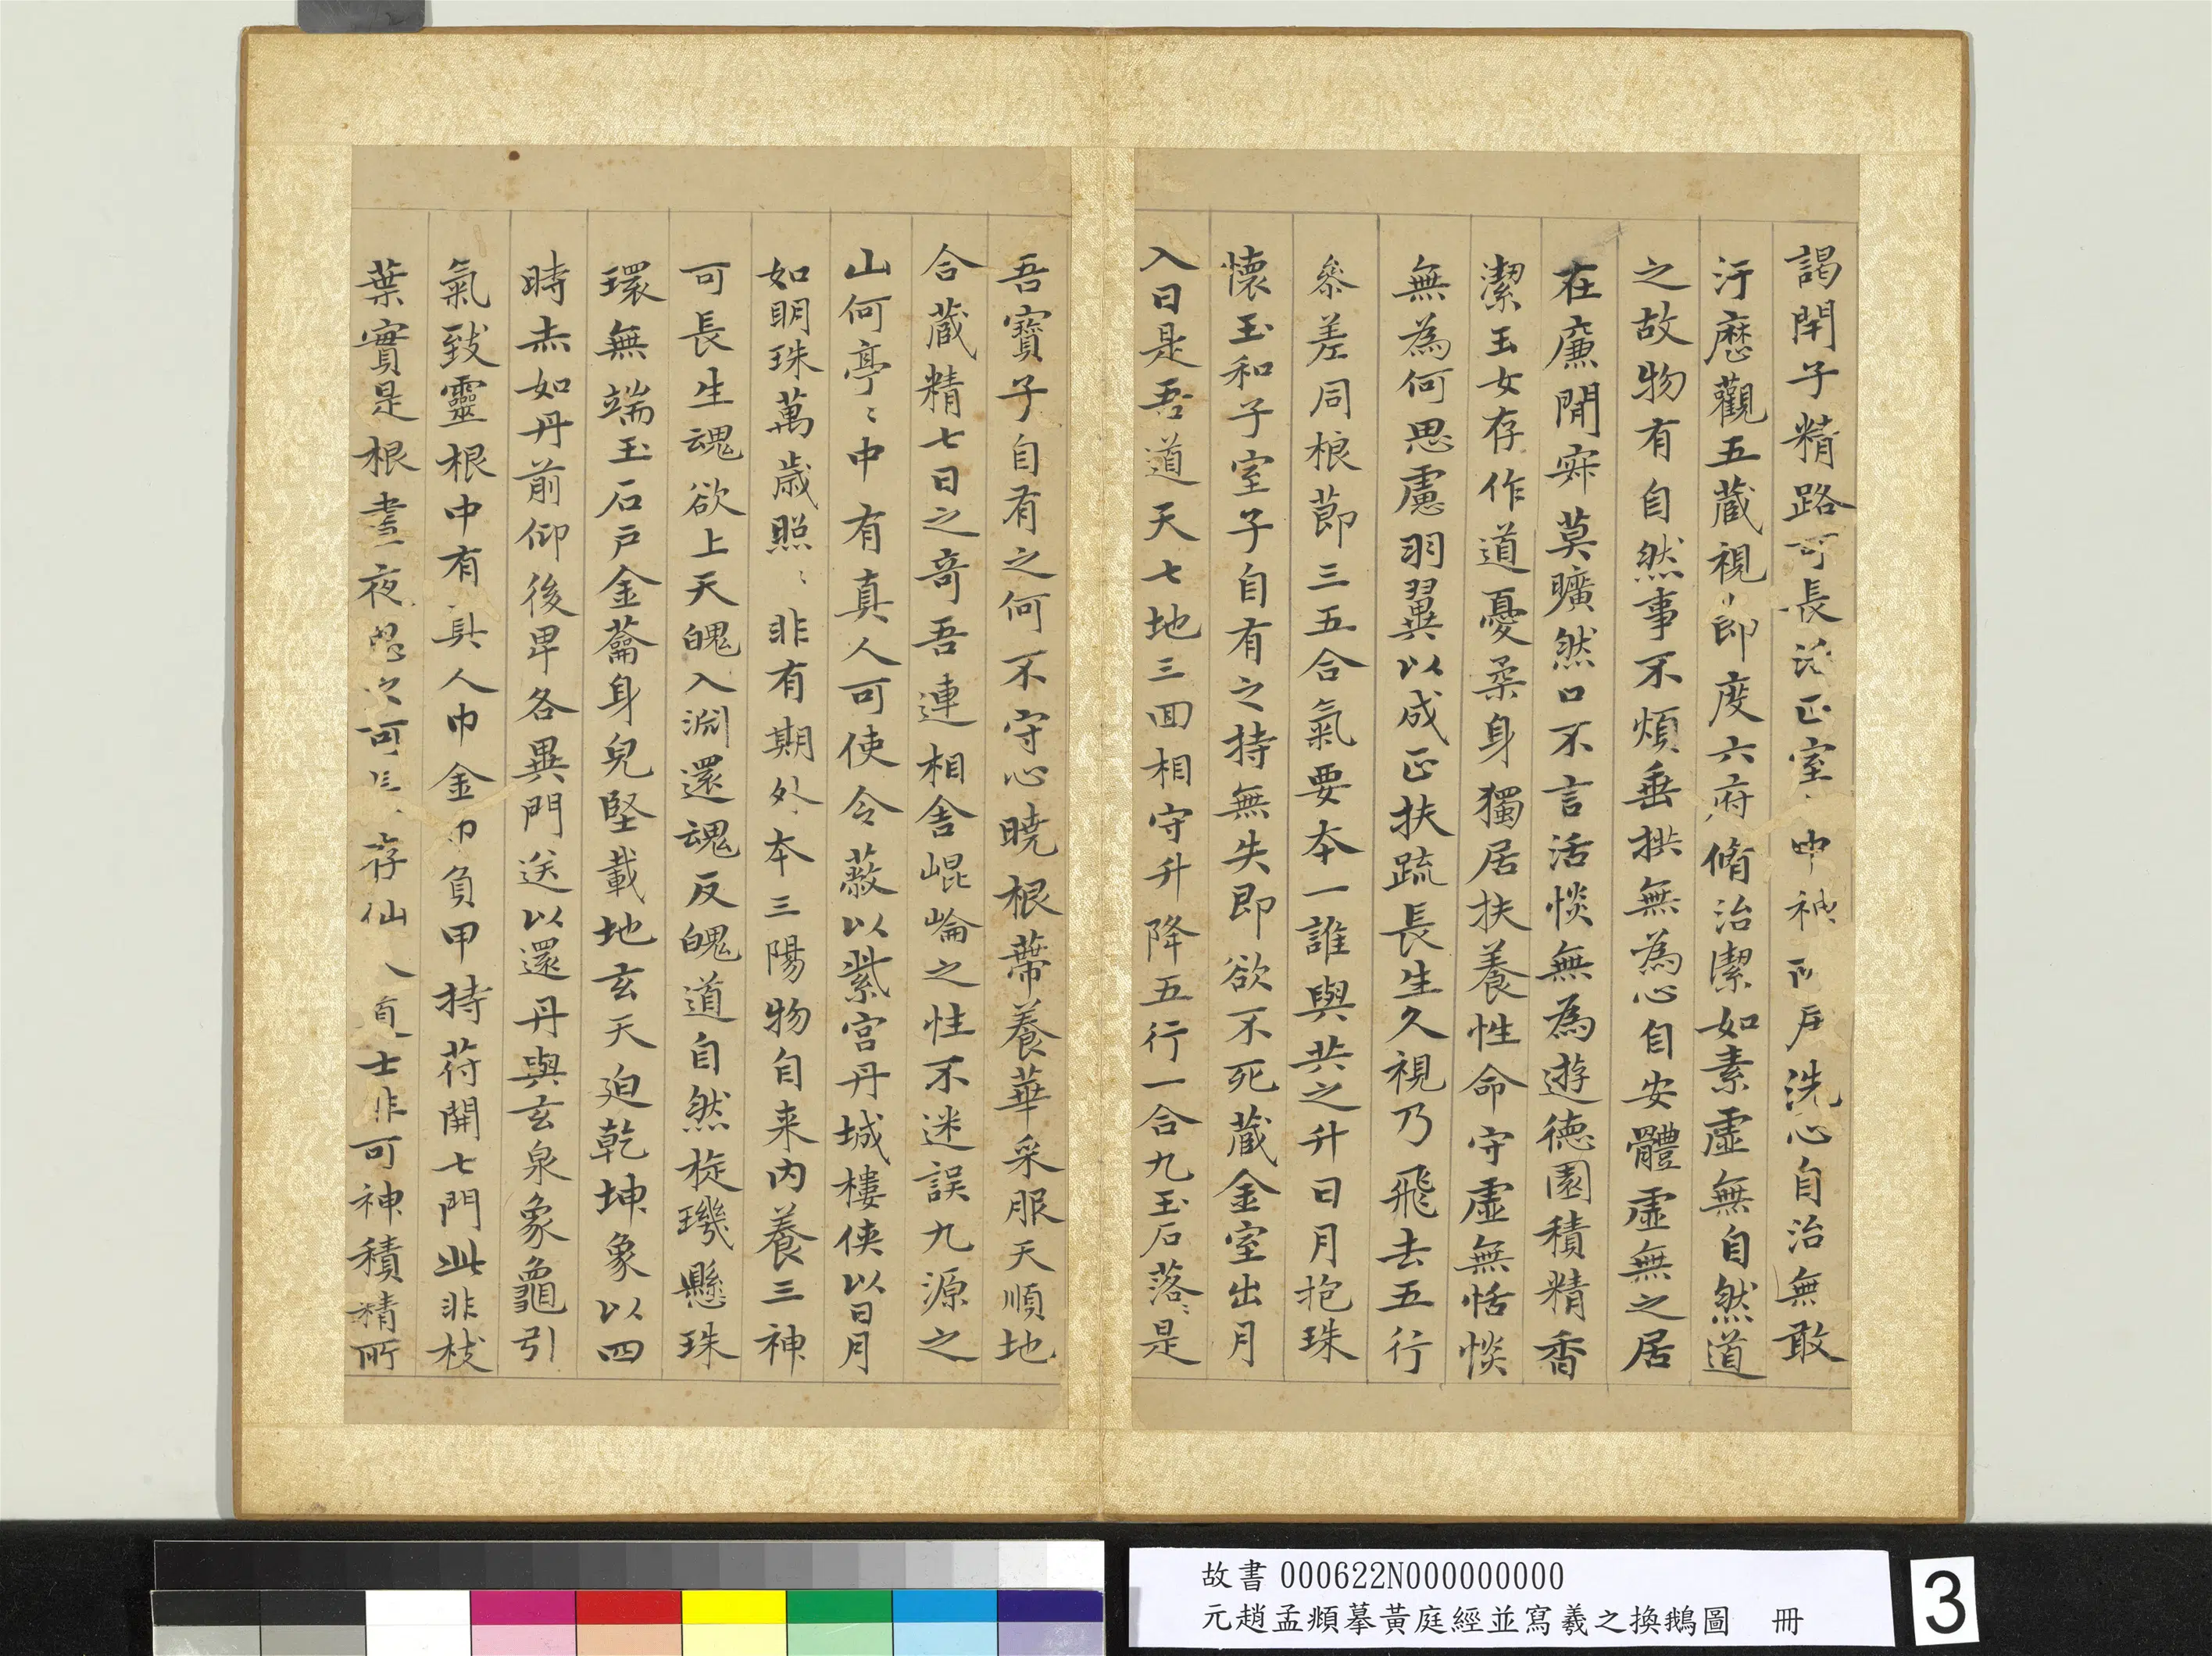 謁閇子精路可長活正室中神所居洗心自治無敢
汙歷觀五藏視節度六府脩治潔如素虛無自然道
之故物有自然事不煩垂拱無為心自安體虛無之居
在廉閒寂莫曠然口不言活惔無為遊德園積精香
潔玉女存作道憂柔身獨居扶養性命守虛無恬惔
無為何思慮羽翼以成正扶疏長生久視乃飛去五行
參差同根節三五合氣要本一誰與共之升日月抱珠
懷玉和子室子自有之持無失即欲不死藏金室出月
入日是吾道天七地三回相守升降五行一合九玉石落〻是
吾寶子自有之何不守心曉根蔕養華采服天順地
合藏精七日之奇吾連相舍崐崘之性不迷誤九源之
山何亭〻中有真人可使令蔽以紫宮丹城樓俠以日月
如明珠萬歲照〻非有期外本三陽物自来內養三神
可長生魂欲上天魄入淵還魂反魄道自然㫌璣懸珠
環無端玉石戶金蘥身皃堅載地玄天迫乾坤象以四
時赤如丹前仰後卑各異門送以還丹與玄泉象龜引
氣致靈根中有真人巾金巾負甲持苻開七門此非枝
葉實是根晝夜思之可長存仙人道士非可神積精所
故書 000622N000000000
元趙孟頫摹黃庭經並寫羲之換鵝圖 冊
3